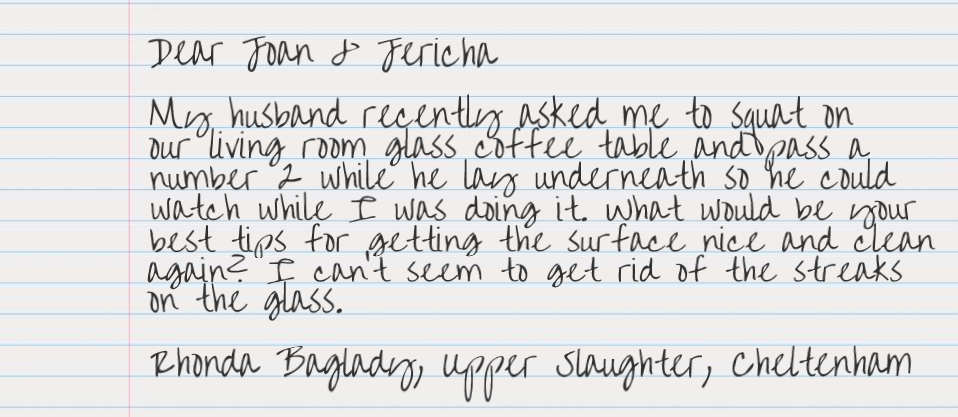 Dear Joan & Jericha
My husband recently asked me to squat on
our living room glass coffee table and pass a
number 2 while he lay underneath so he could
watch while I was doing it. What would be your
best tips for getting the surface nice and clean
again? I can't seem to get rid of the streaks
on the glass.
Rhonda Baglady, Upper Slaughter, Cheltenham